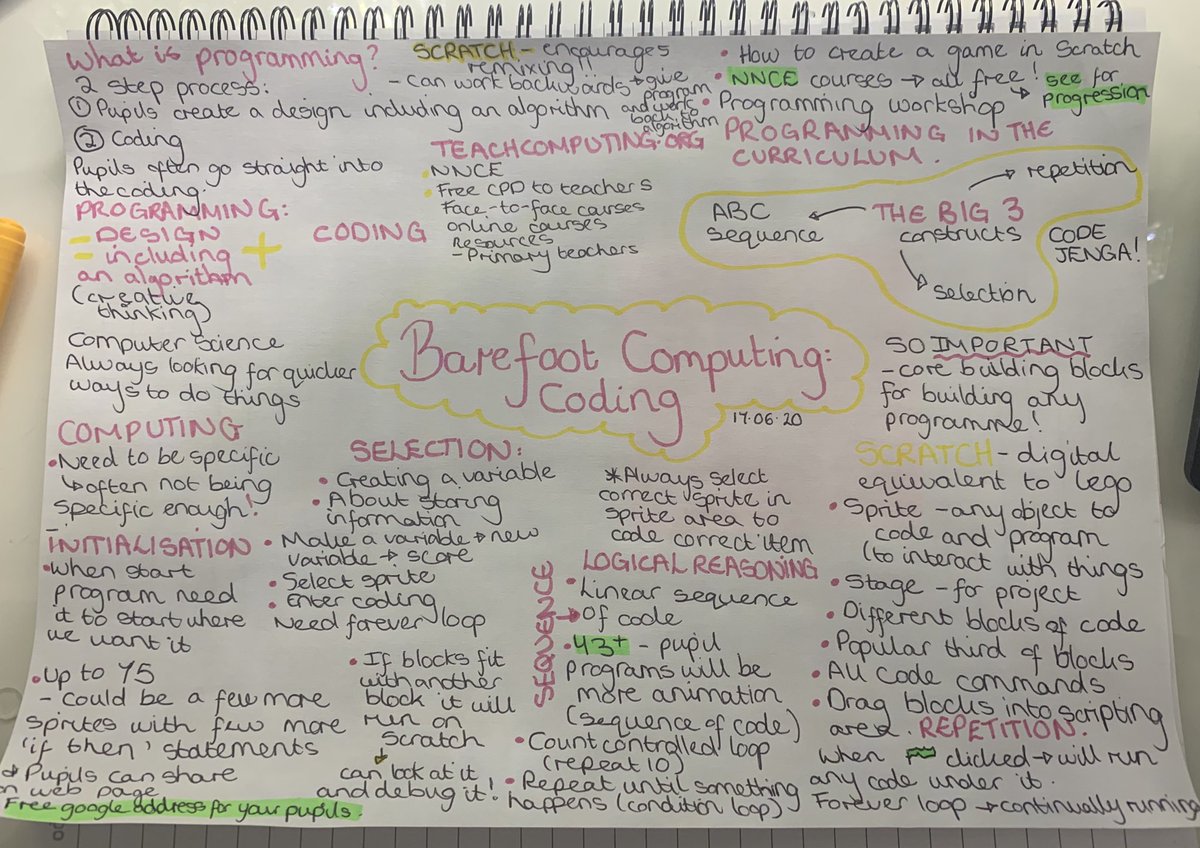 What is programming?
2 step process:
① Pupils create a design including an algorithm
② Coding
Pupils often go straight into
the coding.
PROGRAMMING:
= DESIGN + CODING
including
an algorithm
(creative
thinking)
Computer science
Always looking for quicker
ways to do things
COMPUTING
• Need to be specific
↳ often not being
specific enough!
INITIALISATION
• When start
program need
it to start where
we want it
• Up to Y5
- Could be a few more
sprites with few more
'if then' statements
→ Pupils can share
on web page
Free google address for your pupils.
SCRATCH - encourages
remixing
- Can work backwards → give
program
and work
back to
algorithm
TEACHCOMPUTING.ORG
• NNCE
• Free CPD to teachers
Face-to-face courses
online courses
Resources
- Primary teachers
• How to create a game in Scratch
• NNCE courses → all free!
↳ see for
progression
• Programming workshop
PROGRAMMING IN THE
CURRICULUM.
THE BIG 3
constructs
→ repetition
ABC
sequence
selection
CODE
JENGA!
Barefoot Computing:
Coding
17.06.20
SO IMPORTANT
- core building blocks
for building any
programme!
SELECTION:
• Creating a variable
• About storing
information
• Make a variable → new
variable → score
• Select sprite
• Enter coding
Need forever loop
• If blocks fit
with another
block it will
run on
Scratch
↓
can look at it
and debug it!
*Always select
correct sprite in
sprite area to
code correct item
LOGICAL REASONING
SEQUENCE
• Linear sequence
→ of code
• Y3+ - pupil
programs will be
more animation
(sequence of code)
• Count controlled loop
(repeat 10)
• Repeat until something
happens (condition loop)
SCRATCH - digital
equivalent to lego
• Sprite - any object to
code and program
(to interact with things
• Stage - for project
• Different blocks of code
• Popular third of blocks
• All code commands
• Drag blocks into scripting
area.
REPETITION.
When clicked → will run
any code under it.
Forever loop → continually running